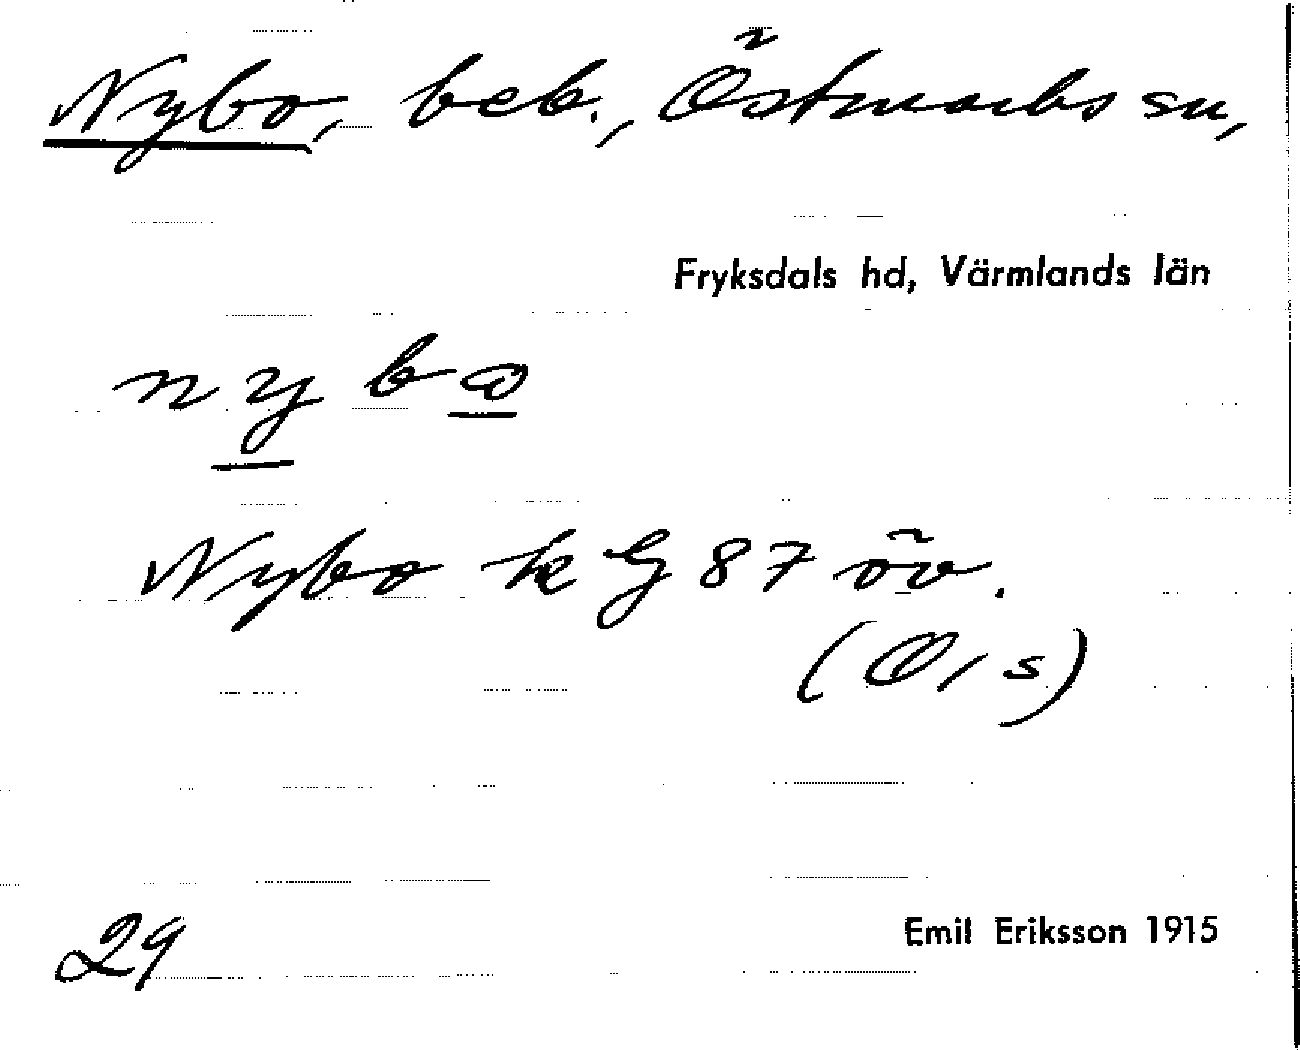 Nybo, beb., Östmarks sn,
Fryksdals hd, Värmlands län
nybω
Nybo k G 87 öv.
(O, s)
29
Emil Eriksson 1915